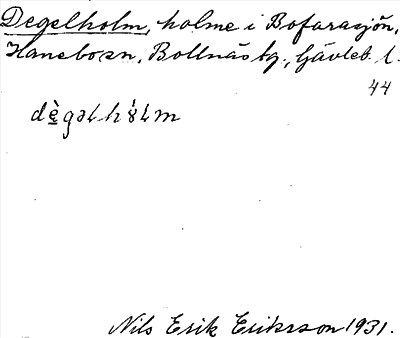 Degelholm, holme i Bofarasjön,
Hanebo sn, Bollnäs tg., Gävleb. l.
44
Nils Erik Eriksson 1931.